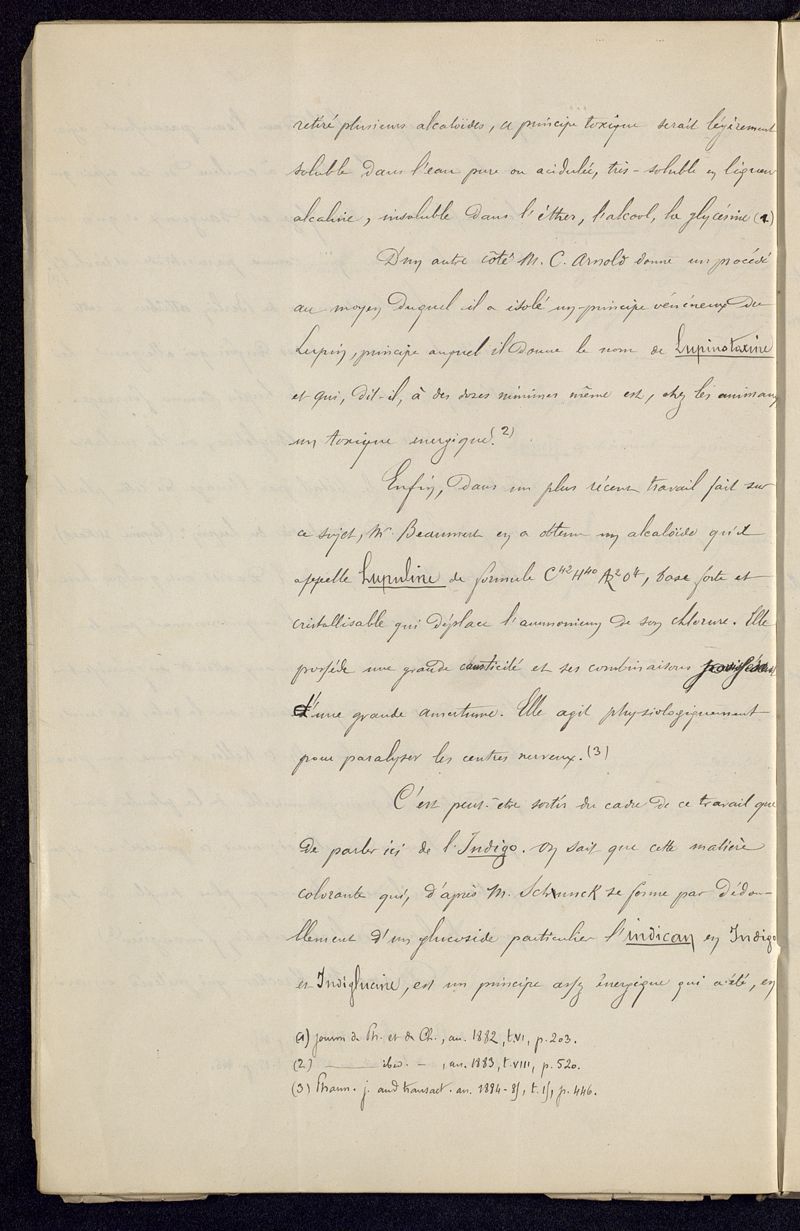 retiré plusieurs alcaloïdes, ce principe toxique serait légèrement
soluble dans l'eau pure ou acidulée, très-soluble en liqueur
alcaline, insoluble dans l'éther, l'alcool, la glycérine (1)
D'un autre côté M. C. Arnold donne un procédé
au moyen duquel il a isolé un principe vénéneux du
Lupin, principe auquel il donne le nom de Lupinotoxine
et qui, dit-il, à des doses minimes même est, chez les animaux
un toxique energique. (2)
Enfin, dans un plus récent travail fait sur
ce sujet, Mr. Beaumert en a obtenu un alcaloïde qu'il
appelle Lupuline de formule C42H40Az2O4, base forte et
cristallisable qui déplace l'ammonium de son chlorure. Elle
possède une grande causticité et ses combinaisons
d'une grande amertume. Elle agit physiologiquement
pour paralyser les centres nerveux. (3)
C'est peut-être sortir du cadre de ce travail que
de parler ici de l'Indigo. On sait que cette matière
colorante qui, d'après M. Schunck se forme par dédou-
blement d'un glucoside particulier l'indican en Indigo
et Indiglucine, est un principe assez énergique qui a été, en
(1) Journ de Ph. et de Ch., an. 1882, t. VI, p. 203.
(2) — ibid. — , an. 1883, t. VIII, p. 520.
(3) Pharm. j. and transact. an. 1884-85, t. 15, p. 446.